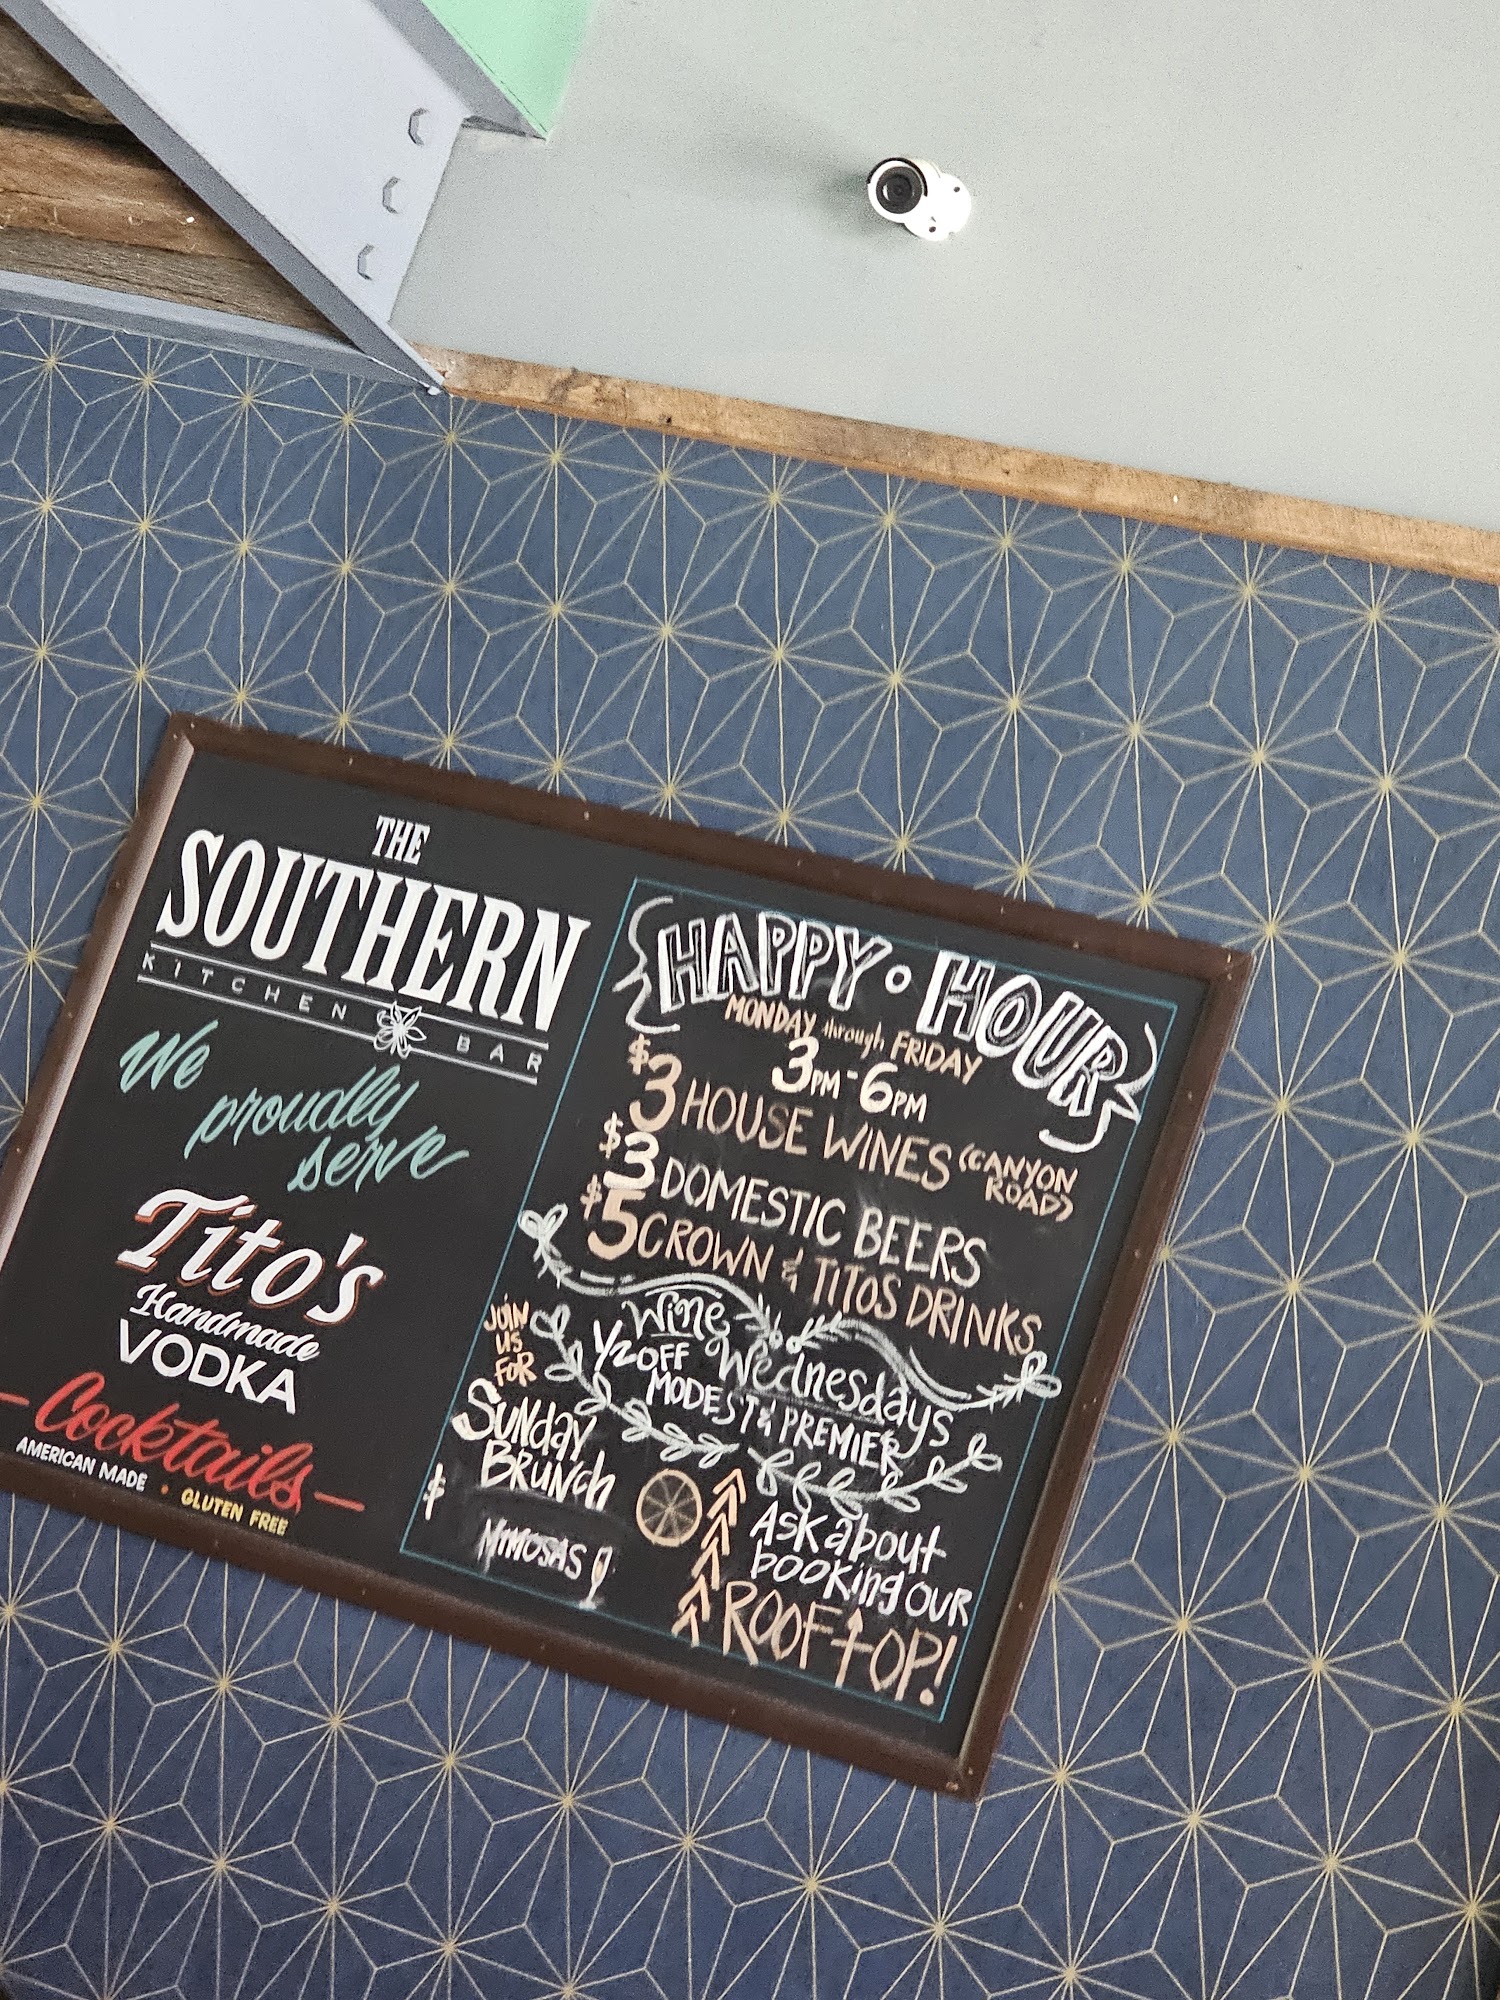 THE
SOUTHERN
KITCHEN BAR
We
proudly
serve
Tito's
Handmade
VODKA
Cocktails
AMERICAN MADE • GLUTEN FREE
HAPPY HOUR
MONDAY through FRIDAY
3PM-6PM
$3 HOUSE WINES (CANYON
ROAD)
$3 DOMESTIC BEERS
$5 CROWN & TITOS DRINKS
Wine
Wednesdays
1/2 OFF
MODEST & PREMIER
JOIN
US
FOR
Sunday
BRUNCH
$
MIMOSAS
ASK about
booking OUR
ROOFTOP!